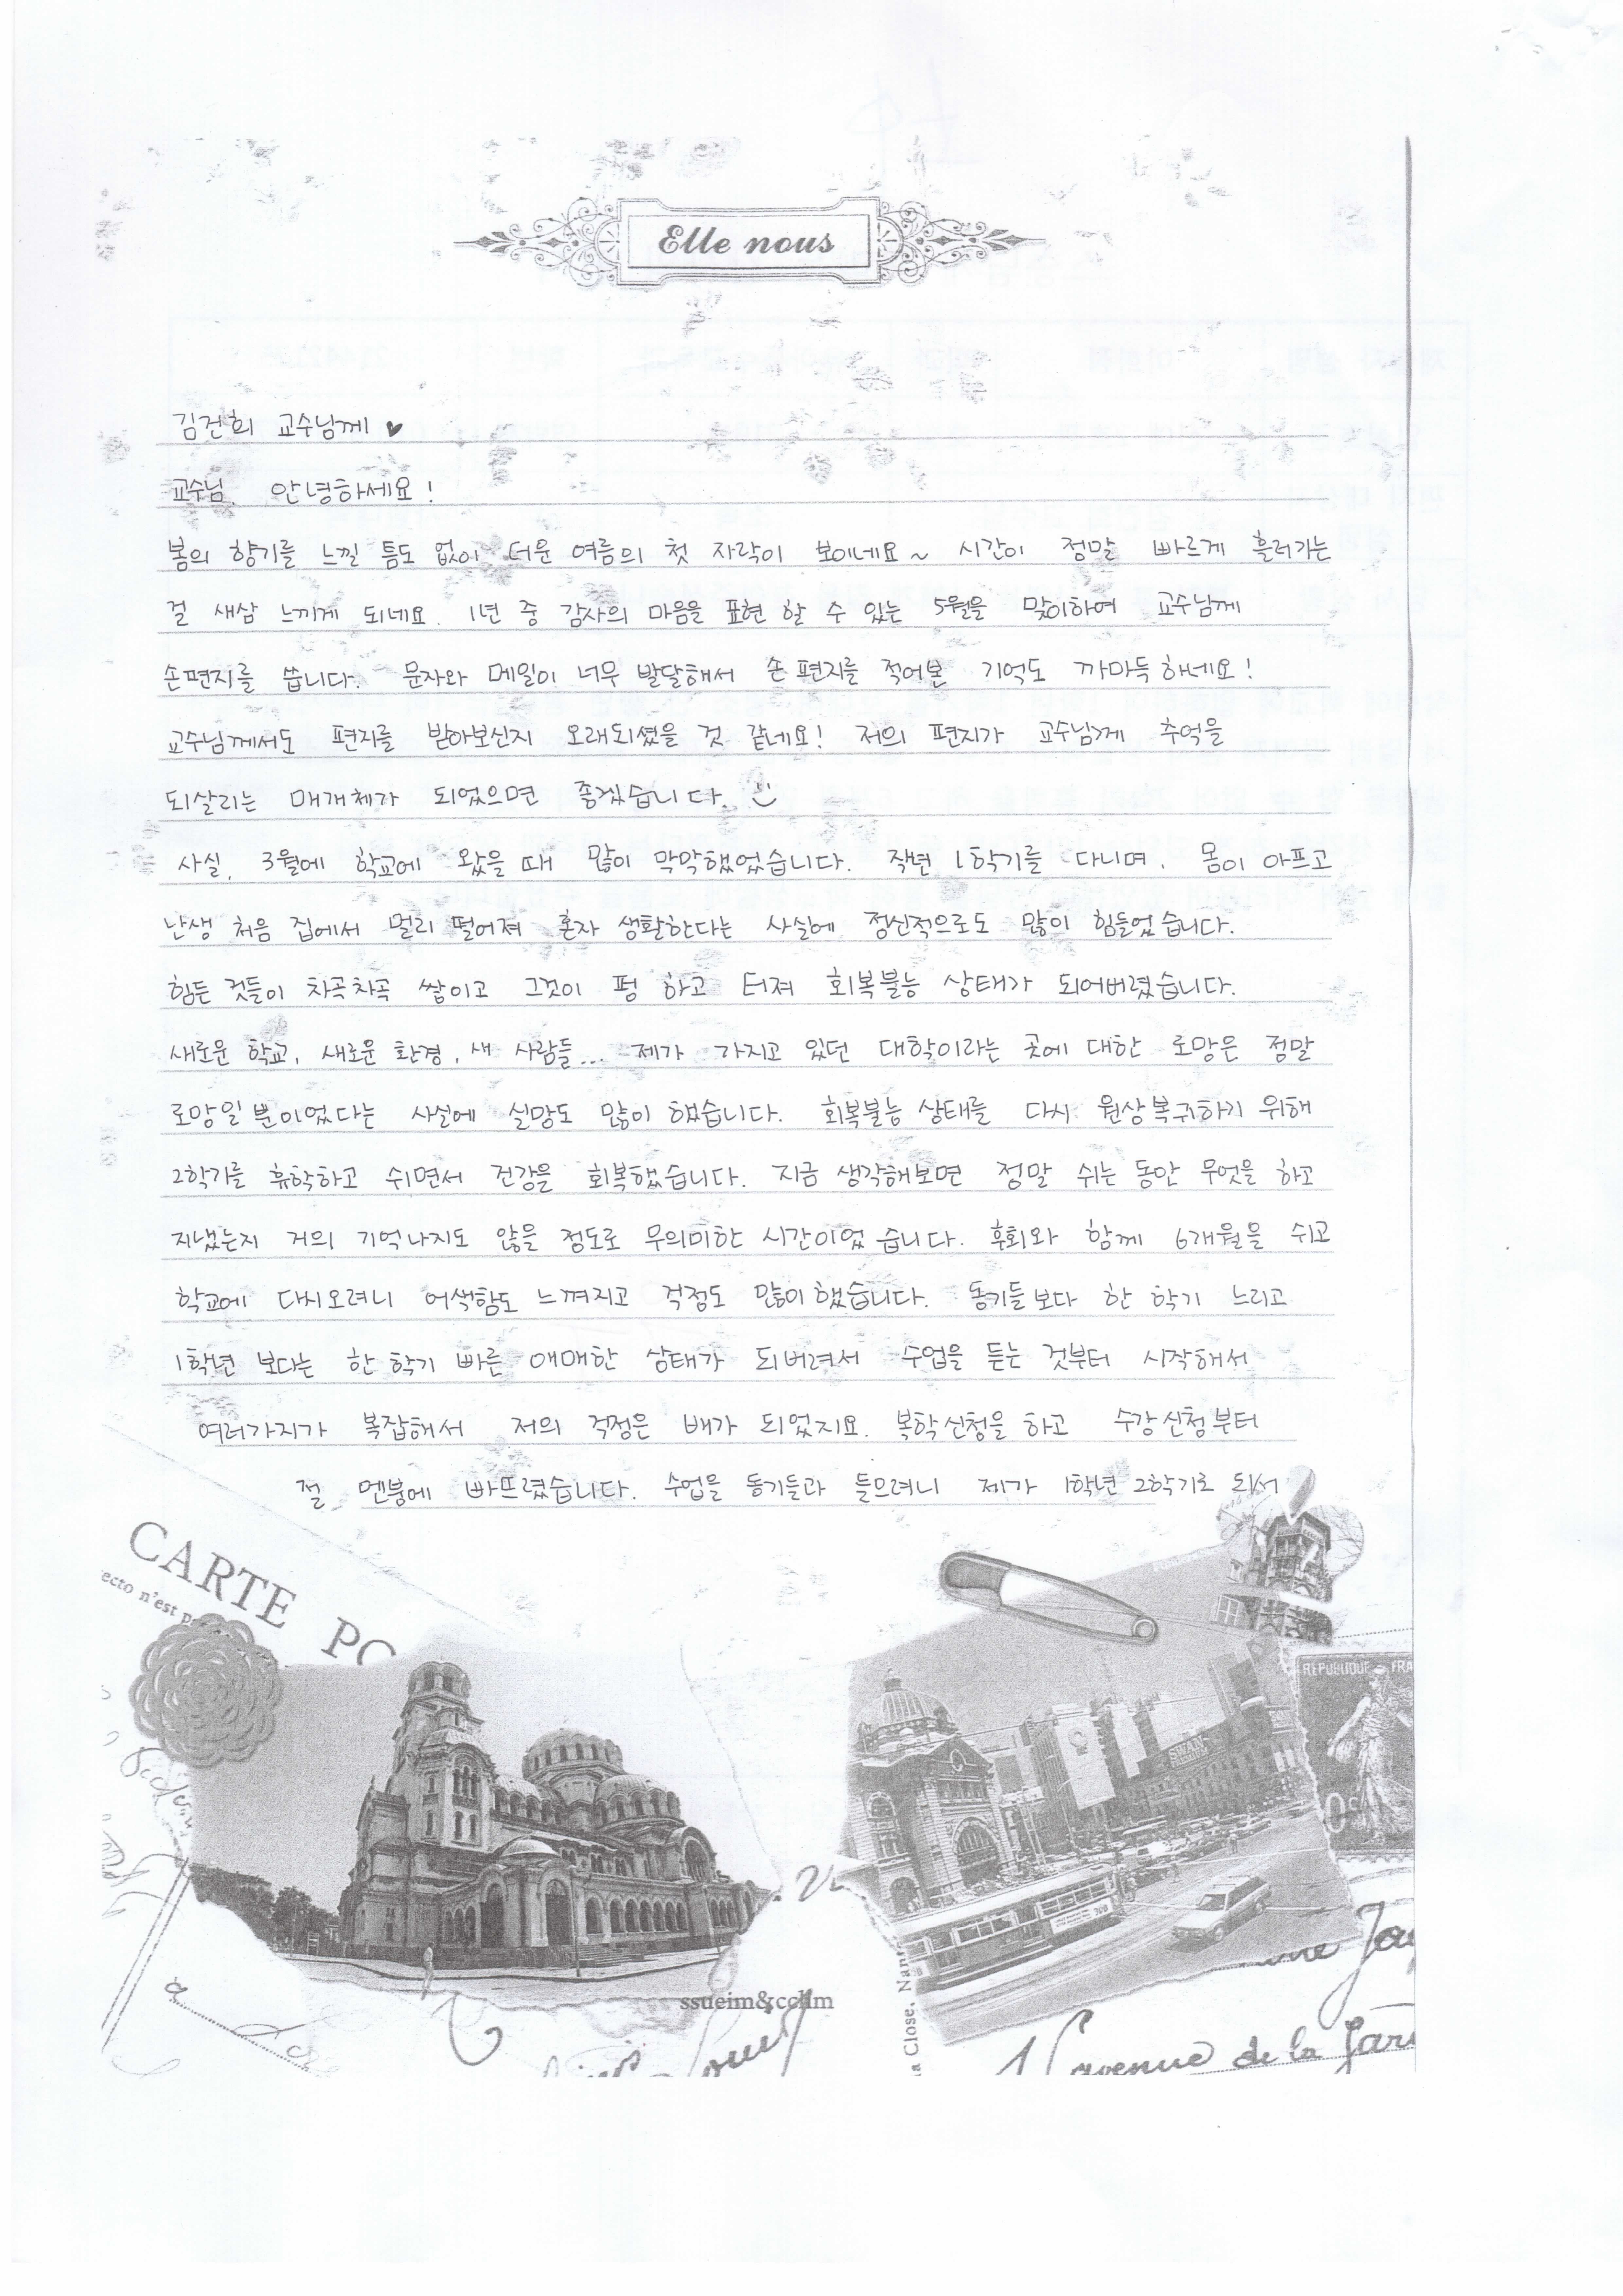 Elle nous
김건희 교수님께 ♥
교수님. 안녕하세요!
봄의 향기를 느낄 틈도 없이 더운 여름의 첫 자락이 보이네요~ 시간이 정말 빠르게 흘러가는
걸 새삼 느끼게 되네요. 1년 중 감사의 마음을 표현 할 수 있는 5월을 맞이하여 교수님께
손편지를 씁니다. 문자와 메일이 너무 발달해서 손 편지를 적어본 기억도 까마득하네요!
교수님께서도 편지를 받아보신지 오래되셨을 것 같네요! 저의 편지가 교수님께 추억을
되살리는 매개체가 되었으면 좋겠습니다.
사실, 3월에 학교에 왔을 때 많이 막막했었습니다. 작년 1학기를 다니며, 몸이 아프고
난생 처음 집에서 멀리 떨어져 혼자 생활한다는 사실에 정신적으로도 많이 힘들었습니다.
힘든 것들이 차곡차곡 쌓이고 그것이 펑 하고 터져 회복불능 상태가 되어버렸습니다.
새로운 학교, 새로운 환경, 새 사람들... 제가 가지고 있던 대학이라는 곳에 대한 로망은 정말
로망일 뿐이었다는 사실에 실망도 많이 했습니다. 회복불능 상태를 다시 원상복귀하기 위해
2학기를 휴학하고 쉬면서 건강을 회복했습니다. 지금 생각해보면 정말 쉬는 동안 무엇을 하고
지냈는지 거의 기억나지도 않을 정도로 무의미한 시간이었습니다. 후회와 함께 6개월을 쉬고
학교에 다시오려니 어색함도 느껴지고 걱정도 많이했습니다. 동기들보다 한 학기 느리고
1학년 보다는 한 학기 빠른 애매한 상태가 되버려서 수업을 듣는 것부터 시작해서
여러가지가 복잡해서 저의 걱정은 배가 되었지요. 복학신청을 하고 수강신청부터
절 멘붕에 빠뜨렸습니다. 수업을 동기들과 들으려니 제가 1학년 2학기로 되서
CARTE PO
ecto n'est p
REPUBLIQUE FRA
SWAN
0c
ssueim&cclim
a Close, Nan
avenue de la Gare